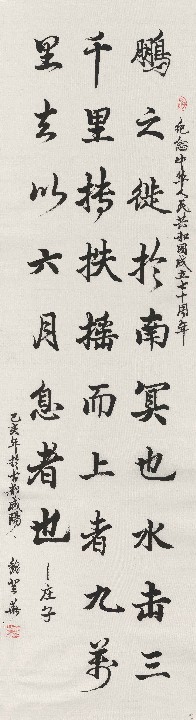 纪念中华人民共和国成立七十周年
鹏之徙於南冥也水击三
千里抟扶摇而上者九万
里去以六月息者也
—庄子
己亥年於古都咸阳